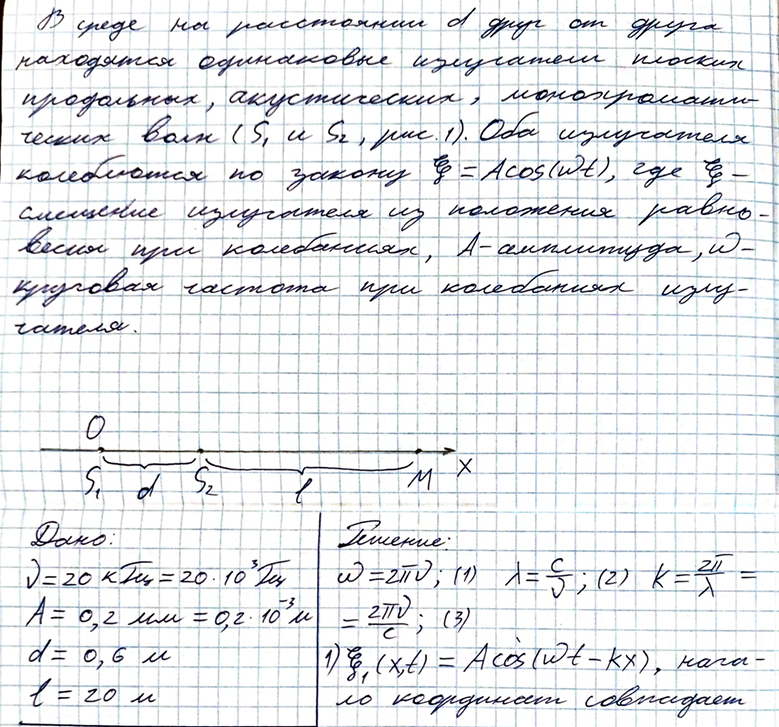 В среде на расстоянии d друг от друга
находятся одинаковые излучатели плоских
продольных, акустических, монохромати-
ческих волн (S₁ и S₂, рис. 1). Оба излучателя
колеблются по закону ξ = Acos(ωt), где ξ -
смещение излучателя из положения равно-
весия при колебаниях, A - амплитуда, ω -
круговая частота при колебаниях излу-
чателя.
O
S₁ d S₂ l M X
Дано:
ν = 20 кГц = 20·10³ Гц
A = 0,2 мм = 0,2·10⁻³ м
d = 0,6 м
l = 20 м
Решение:
ω = 2πν; (1) λ = c/ν; (2) k = 2π/λ =
= 2πν/c; (3)
1) ξ₁(x,t) = Acos(ωt - kx), нача-
ло координат совпадает